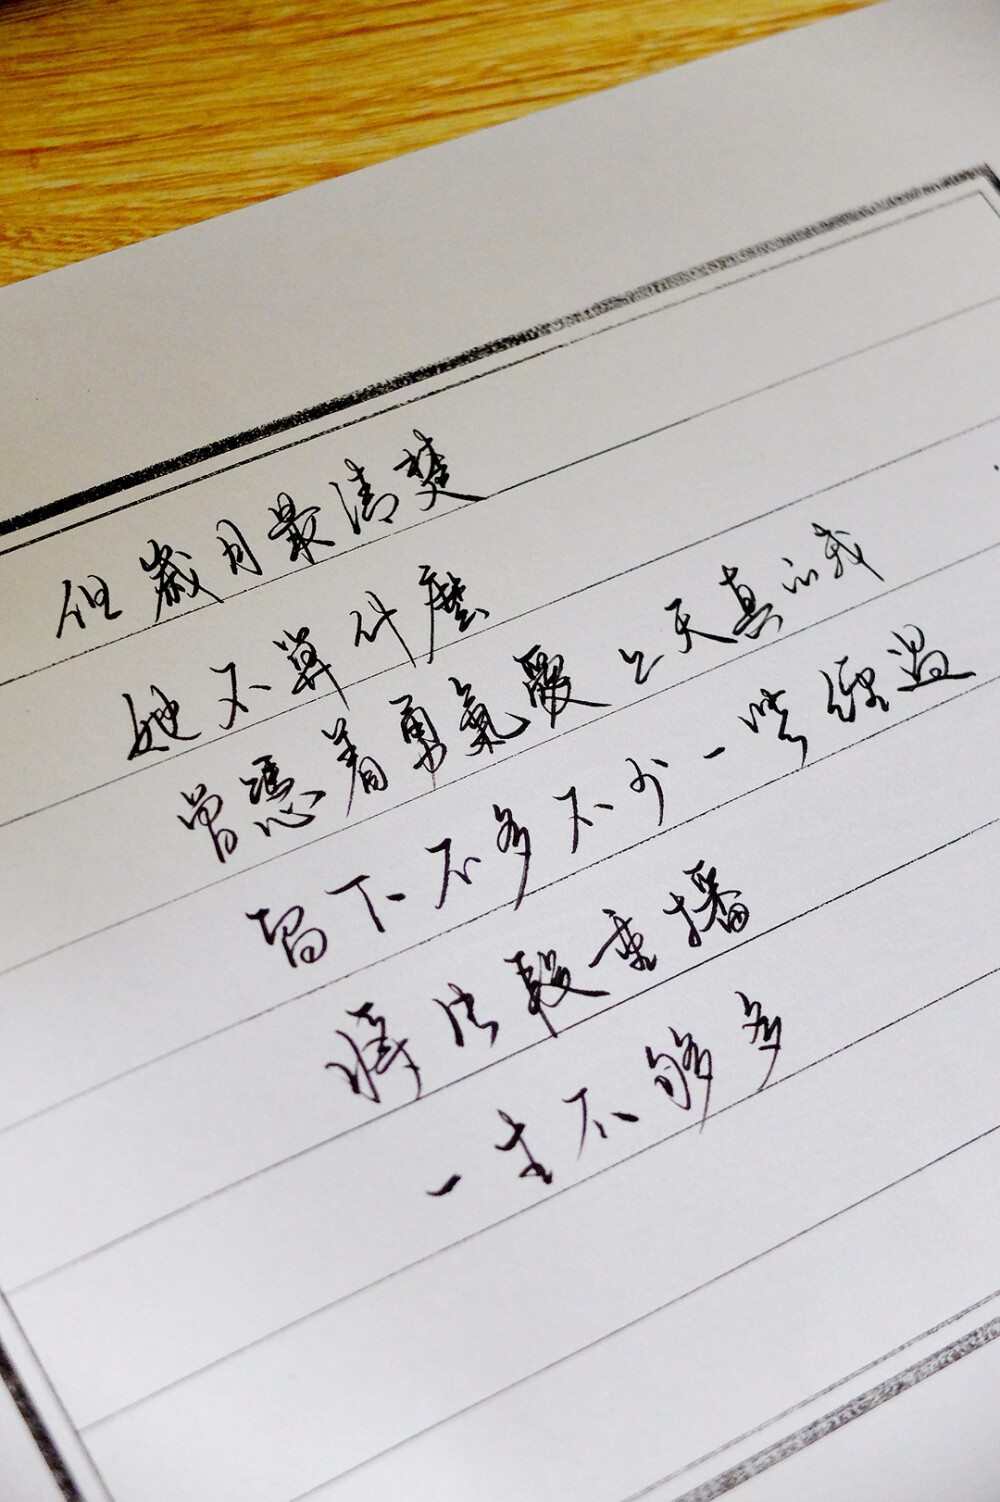 但歲月最清楚
她不算什麼
曾憑着勇氣愛上天真的我
留下不多不少一些經過
將片段重播
一生不夠多